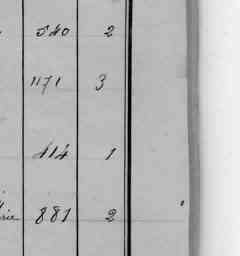 540 2
1171 3
414 1
881 2